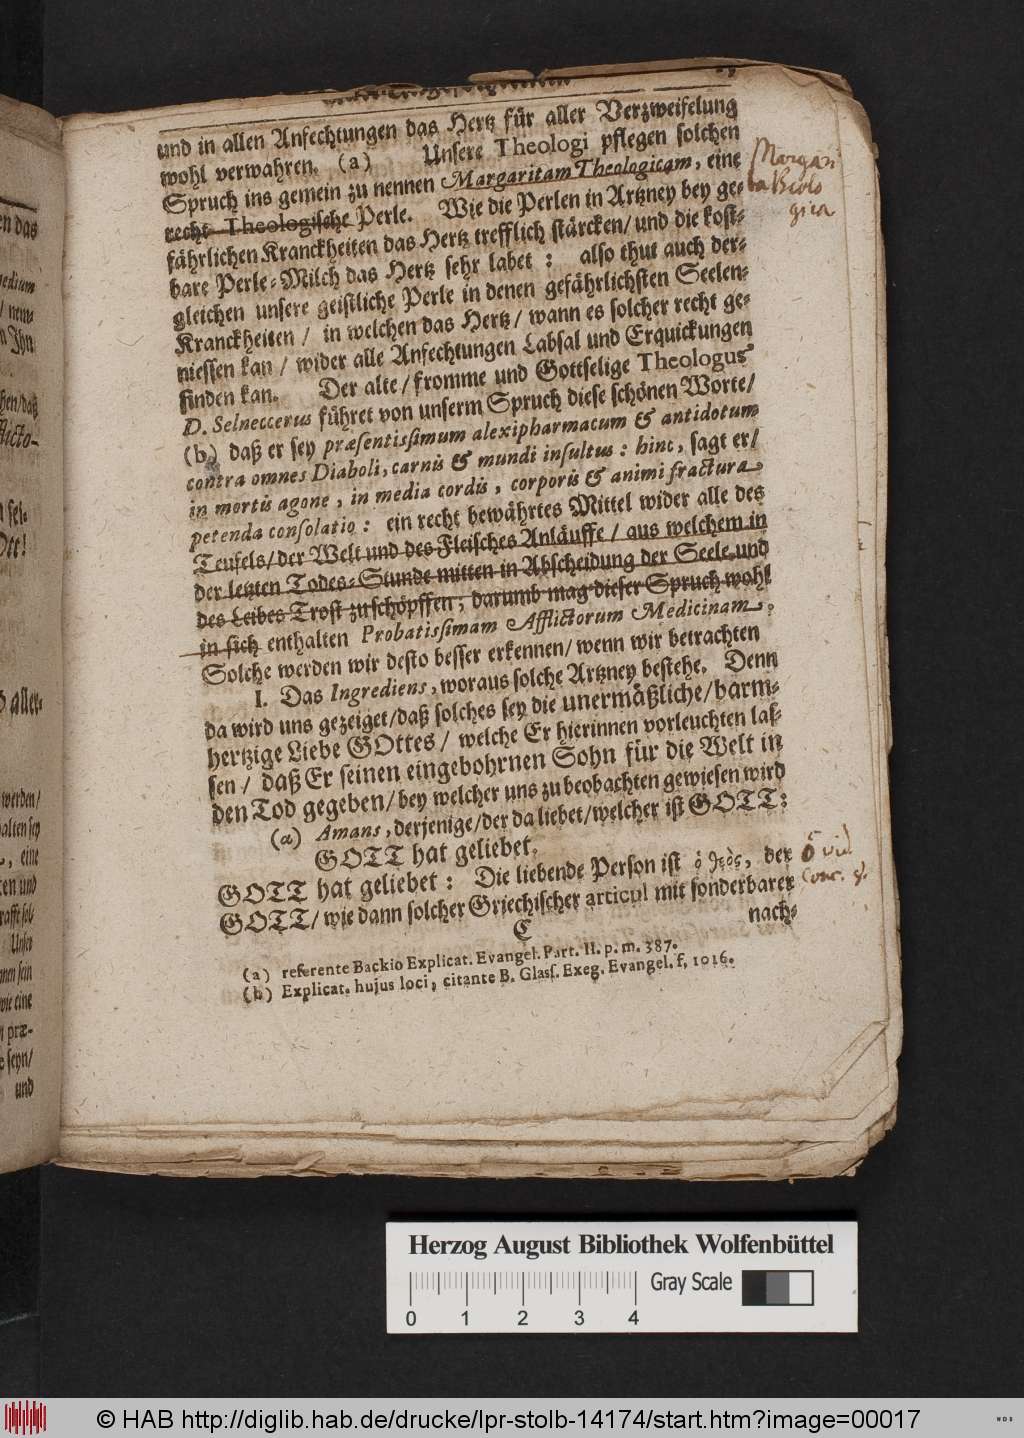 und in allen Anfechtungen das Hertz für aller Verzweifelung
wohl verwahren. (a) Unsere Theologi pflegen solchen
Spruch ins gemein zu nennen Margaritam Theologicam, eine
recht Theologische Perle. Wie die Perlen in Artzney bey ge-
fährlichen Kranckheiten das Hertz trefflich stärcken/ und die kost-
bare Perle-Milch das Hertz sehr labet: also thut auch der-
gleichen unsere geistliche Perle in denen gefährlichsten Seelen-
Kranckheiten / in welchen das Hertz / wann es solcher recht ge-
niessen kan / wider alle Anfechtungen Labsal und Erquickungen
finden kan. Der alte / fromme und Gottselige Theologus
D. Selneccerus führet von unserm Spruch diese schönen Worte/
(b) daß er sey præsentissimum alexipharmacum & antidotum
contra omnes Diaboli, carnis & mundi insultus: hinc, sagt er/
in mortis agone, in media cordis, corporis & animi fractura
petenda consolatio: ein recht bewährtes Mittel wider alle des
Teufels/ der Welt und des Fleisches Anläuffe / aus welchem in
der letzten Todes-Stunde mitten in Abscheidung der Seele und
des Leibes Trost zu schöpffen; darumb mag dieser Spruch wohl
in sich enthalten Probatissimam Afflictorum Medicinam.
Solche werden wir desto besser erkennen/ wenn wir betrachten
I. Das Ingrediens, woraus solche Artzney bestehe. Denn
da wird uns gezeiget/ daß solches sey die unermäßliche/ barm-
hertzige Liebe GOttes / welche Er hierinnen vorleuchten las-
sen / daß Er seinen eingebohrnen Sohn für die Welt in
den Tod gegeben/ bey welcher uns zu beobachten gewiesen wird
(α) Amans, derjenige/ der da liebet/ welcher ist GOTT:
GOTT hat geliebet.
GOTT hat geliebet: Die liebende Person ist ὁ θεὸς, der
GOTT/ wie dann solcher Griechischer articul mit sonderbarer
C nach-
(a) referente Backio Explicat. Evangel. Part. II. p. m. 387.
(b) Explicat. hujus loci, citante B. Glass. Exeg. Evangel. f. 1016.
Margari
ta Theolo
gica
ὁ vid.
Herzog August Bibliothek Wolfenbüttel
Gray Scale
0 1 2 3 4
© HAB http://diglib.hab.de/drucke/lpr-stolb-14174/start.htm?image=00017